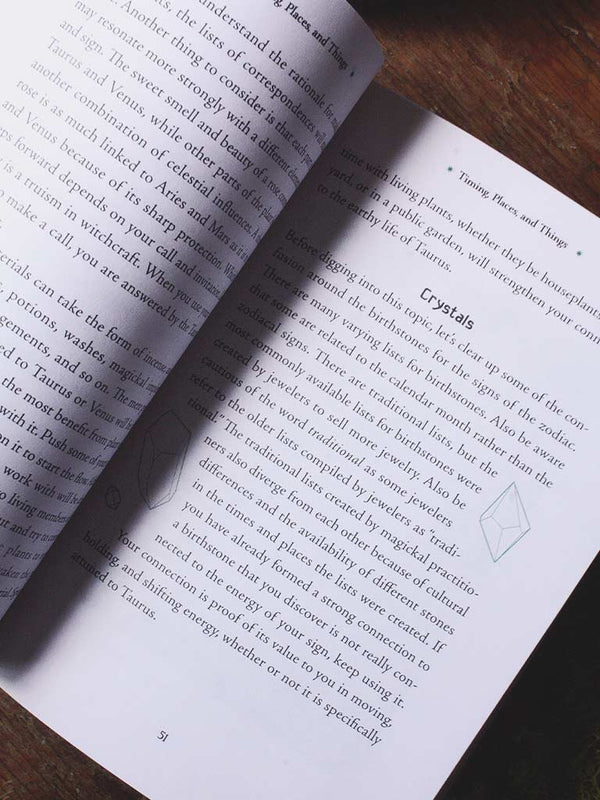 Places, and Things
understand the rationale for
the lists of correspondences will
Another thing to consider is that each
may resonate more strongly with a different
and sign. The sweet smell and beauty of a rose
Taurus and Venus, while other parts of the
another combination of celestial influences. A
rose is as much linked to Aries and Mars as it is
and Venus because of its sharp protection.
forward depends on your call and
is a truism in witchcraft. When you use
make a call, you are answered by the
can take the form of incense
potions, washes, magickal
and so on. The
to Taurus or Venus will
the most benefit from
with it. Push some of
on it to start the flow
work with will be
living
and try to
plants to
Timing, Places, and Things
time with living plants, whether they be houseplants
yard, or in a public garden, will strengthen your
to the earthy life of Taurus.
Crystals
Before digging into this topic, let's clear up some of the con-
fusion around the birthstones for the signs of the zodiac.
There are many varying lists for birthstones. Also be aware
that some are related to the calendar month rather than the
zodiacal signs. There are traditional lists, but the
most commonly available lists for birthstones were
created by jewelers to sell more jewelry. Also be
cautious of the word traditional, as some jewelers
refer to the older lists compiled by jewelers as "tradi-
tional." The traditional lists created by magickal practitio-
ners also diverge from each other because of cultural
differences and the availability of different stones
in the times and places the lists were created. If
you have already formed a strong connection to
a birthstone that you discover is not really con-
nected to the energy of your sign, keep using it.
Your connection is proof of its value to you in moving,
holding, and shifting energy, whether or not it is specifically
attuned to Taurus.
51